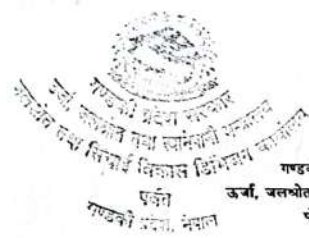 गण्डकी प्रदेश सरकार
ऊर्जा, जलस्रोत तथा खानेपानी मन्त्रालय
जलस्रोत तथा सिंचाई विकास डिभिजन कार्यालय
पर्वत
गण्डकी प्रदेश, नेपाल
गण्डक
ऊर्जा, जलश्रोत